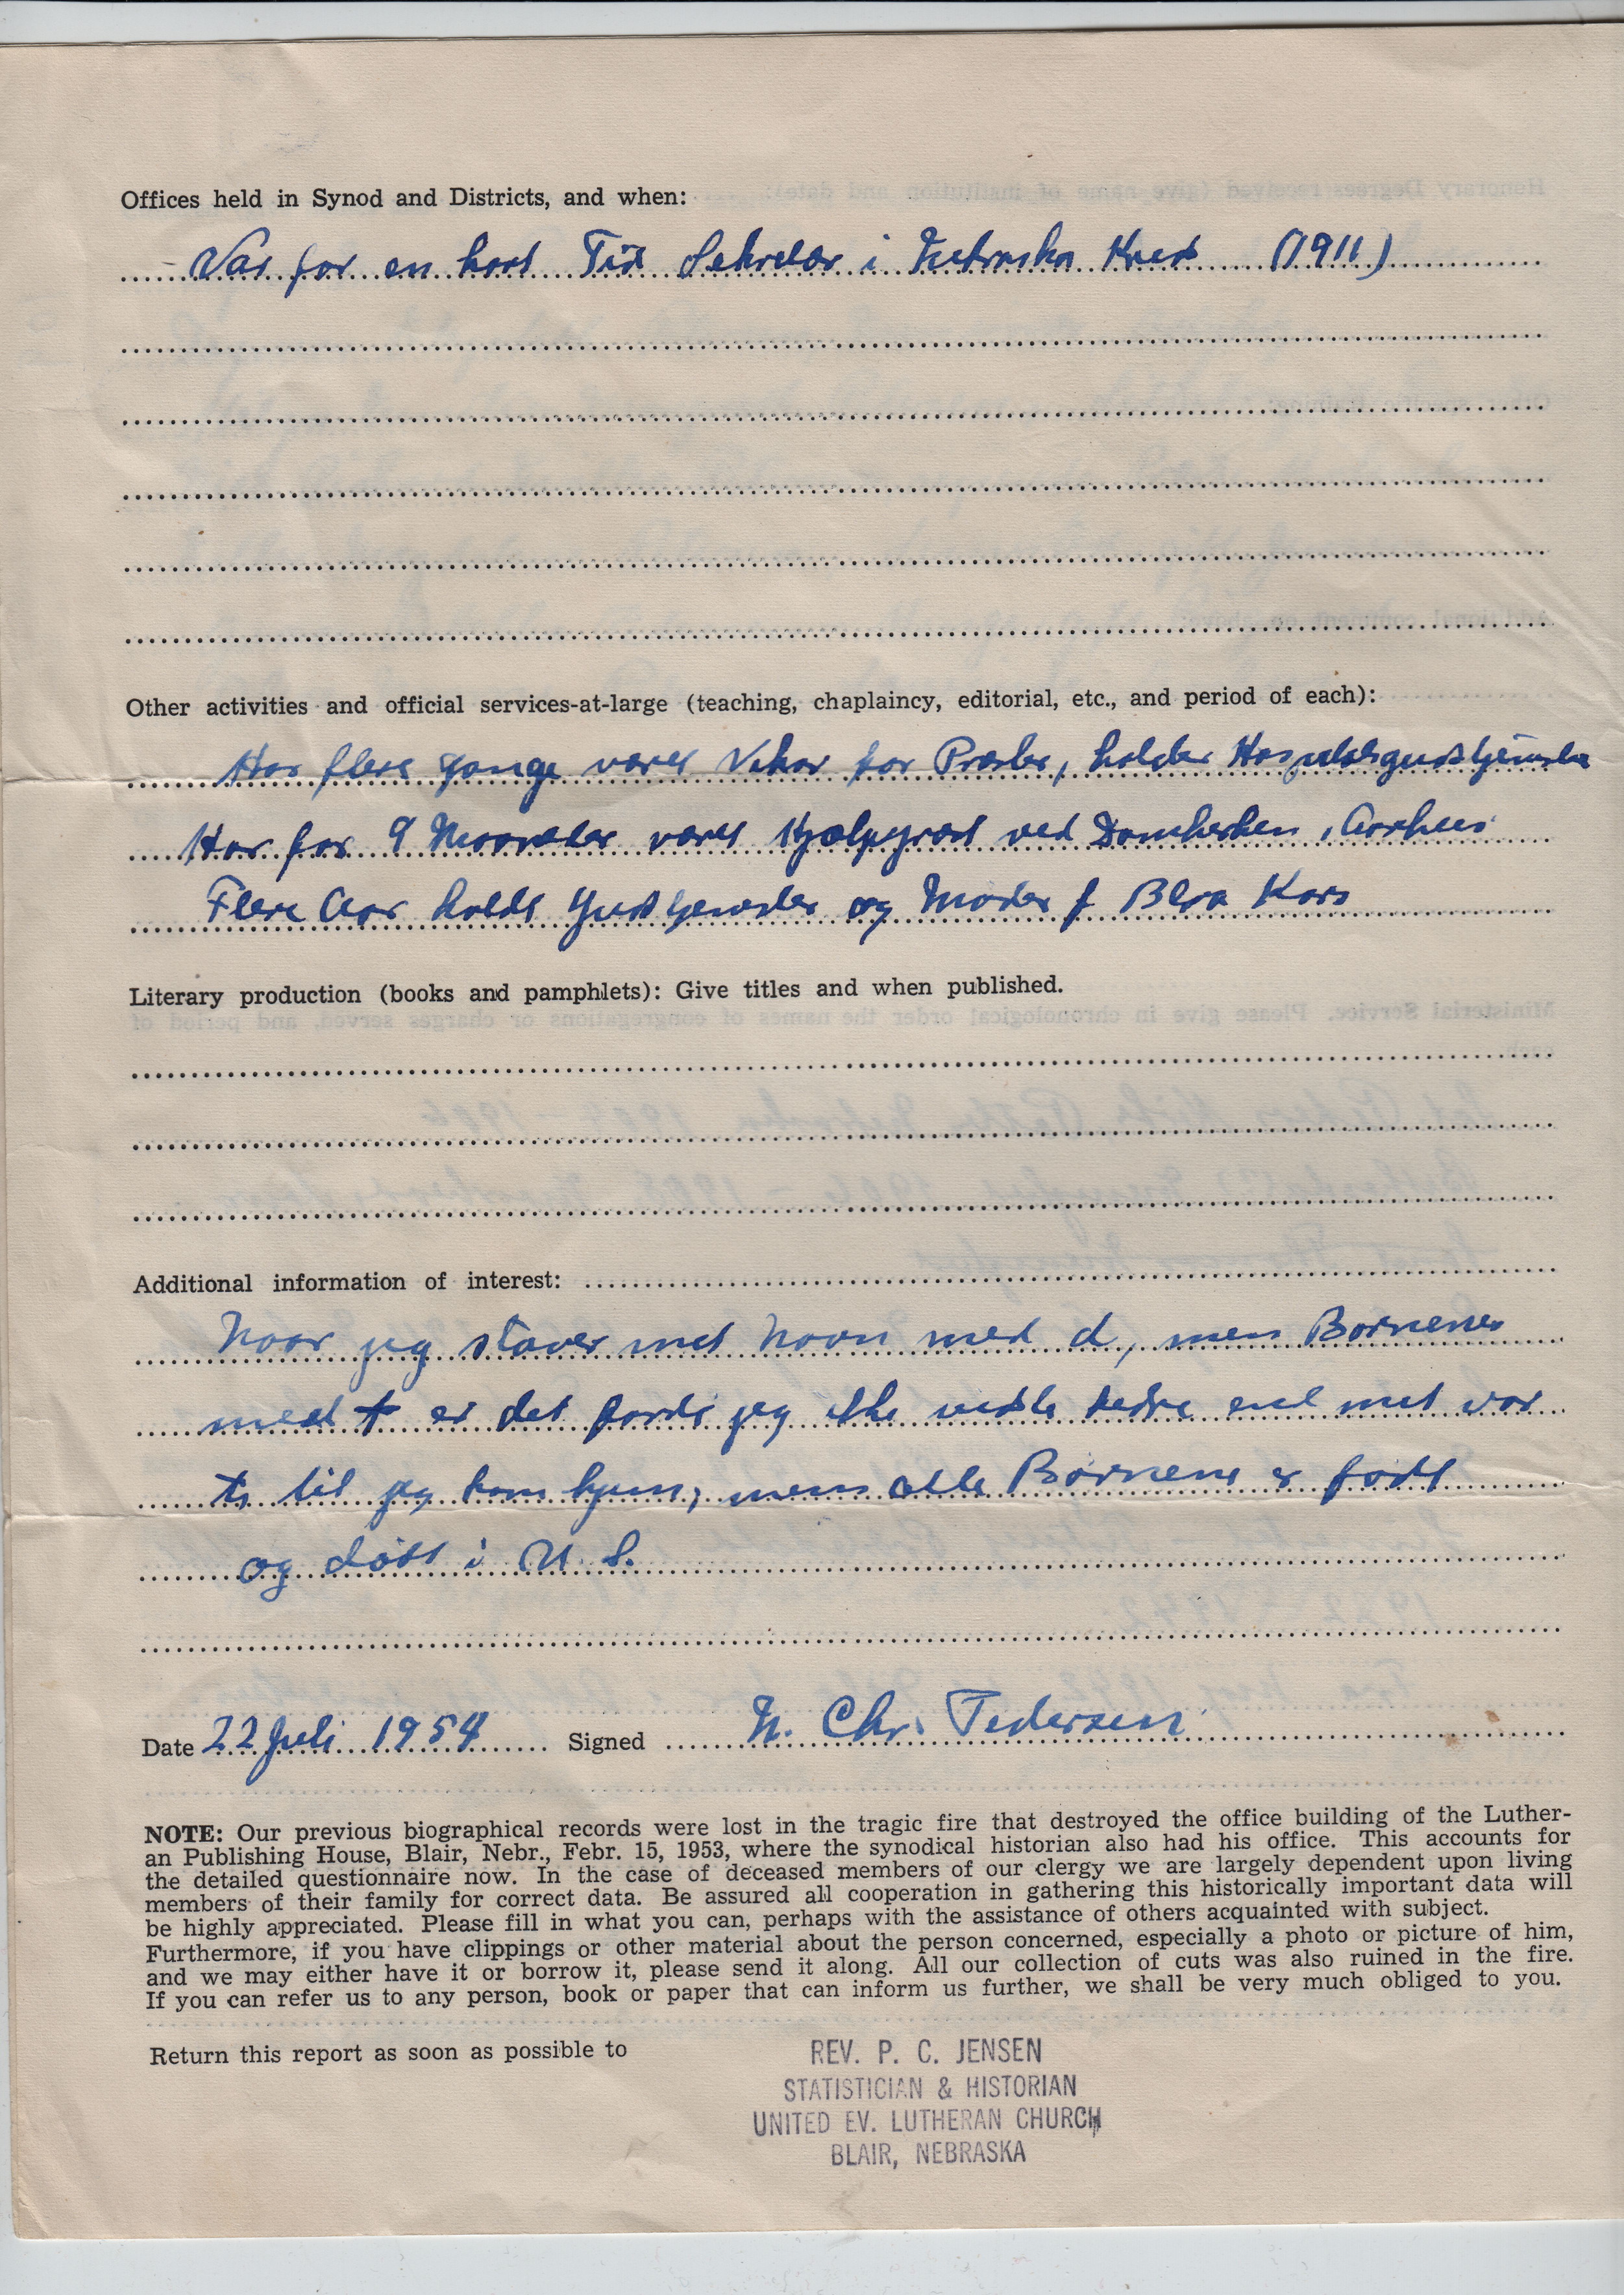 Offices held in Synod and Districts, and when:
Var for en kort Tid Sekretær i Nebraska Kreds (1911)
Other activities and official services-at-large (teaching, chaplaincy, editorial, etc., and period of each):
Har flere gange været Vikar for Præster, holder Hospitalsgudstjenester
Har for 9 Maaneder været Hjælpepræst ved Domkirken i Aarhus
Flere Aar holdt Gudstjenester og Møder f Blaa Kors
Literary production (books and pamphlets): Give titles and when published.
Additional information of interest:
Naar jeg staver mit Navn med d, men Børnenes
med t er det fordi jeg ikke vidste bedre end mit var
t, til jeg kom hjem, men alle Børnene er født
og døbt i U. S.
Date 22 Juli 1954 Signed N. Chr. Pedersen
NOTE: Our previous biographical records were lost in the tragic fire that destroyed the office building of the Luther-
an Publishing House, Blair, Nebr., Febr. 15, 1953, where the synodical historian also had his office. This accounts for
the detailed questionnaire now. In the case of deceased members of our clergy we are largely dependent upon living
members of their family for correct data. Be assured all cooperation in gathering this historically important data will
be highly appreciated. Please fill in what you can, perhaps with the assistance of others acquainted with subject.
Furthermore, if you have clippings or other material about the person concerned, especially a photo or picture of him,
and we may either have it or borrow it, please send it along. All our collection of cuts was also ruined in the fire.
If you can refer us to any person, book or paper that can inform us further, we shall be very much obliged to you.
Return this report as soon as possible to
REV. P. C. JENSEN
STATISTICIAN & HISTORIAN
UNITED EV. LUTHERAN CHURCH
BLAIR, NEBRASKA